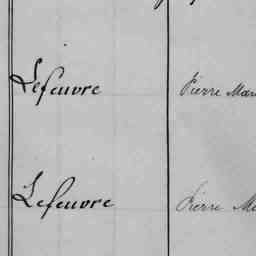 Lefeuvre Pierre
Lefeuvre Pierre